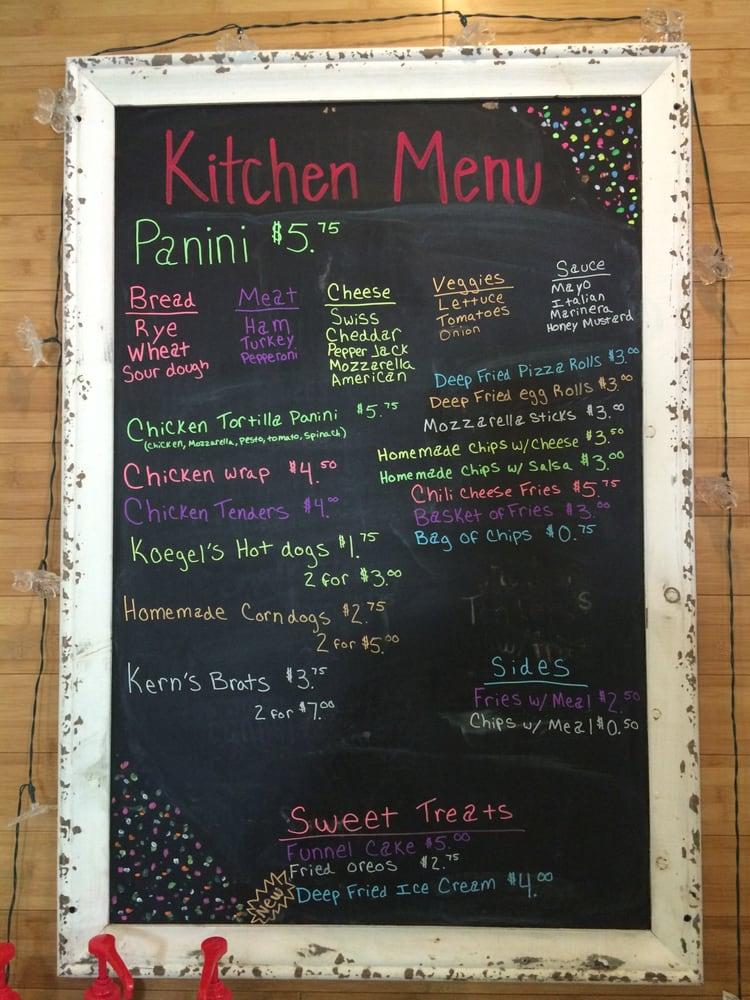 Kitchen Menu
Panini $5.75
Bread
Rye
Wheat
Sour dough
Meat
Ham
Turkey
Pepperoni
Cheese
Swiss
Cheddar
Pepper Jack
Mozzarella
American
Veggies
Lettuce
Tomatoes
Onion
Sauce
Mayo
Italian
Marinera
Honey Mustard
Chicken Tortilla Panini $5.75
(chicken, Mozzarella, pesto, tomato, spinach)
Chicken wrap $4.50
Chicken Tenders $4.00
Koegel's Hot dogs $1.75
2 for $3.00
Homemade Corndogs $2.75
2 for $5.00
Kern's Brats $3.75
2 for $7.00
Deep Fried Pizza Rolls $3.00
Deep Fried egg Rolls $3.00
Mozzarella Sticks $3.00
Homemade chips w/Cheese $3.50
Homemade chips w/ Salsa $3.00
Chili Cheese Fries $5.75
Basket of Fries $3.00
Bag of Chips $0.75
Sides
Fries w/ Meal $2.50
Chips w/ Meal $0.50
Sweet Treats
Funnel Cake $5.00
Fried Oreos $2.75
New! Deep Fried Ice Cream $4.00